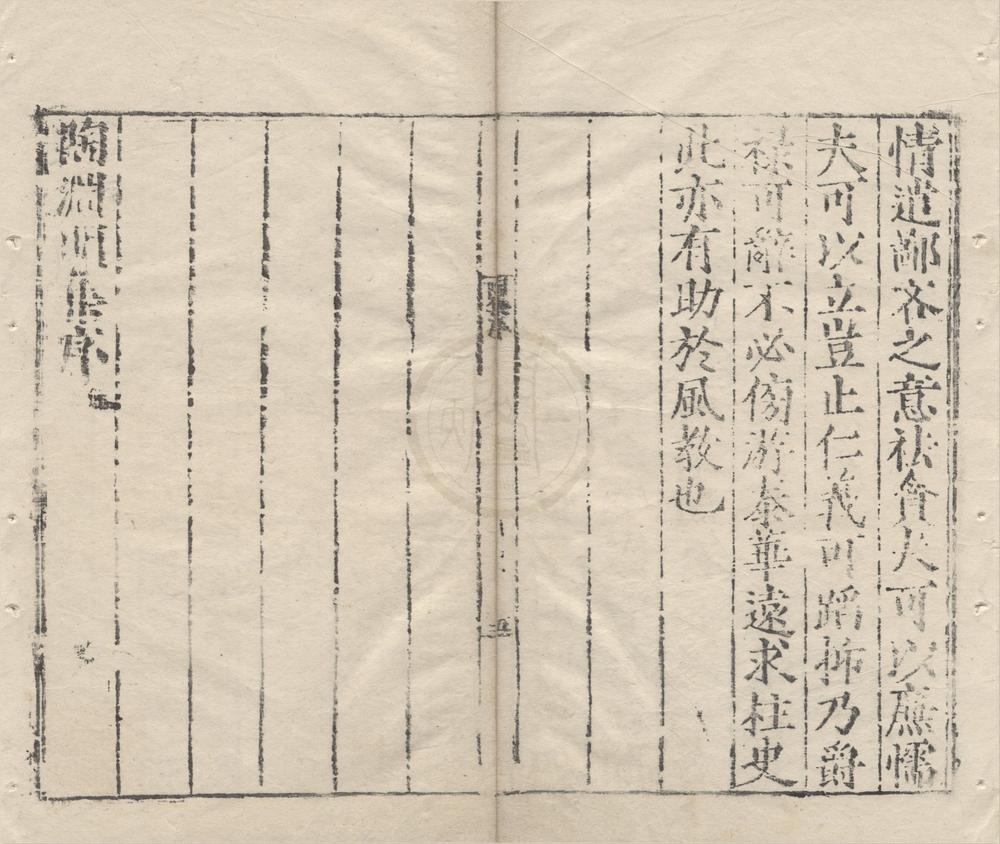 情遣鄙吝之意祛貪夫可以廉懦
夫可以立豈止仁義可蹈抑乃爵
祿可辭不必傍游泰華遠求柱史
此亦有助於風教也
五
陶淵明集序